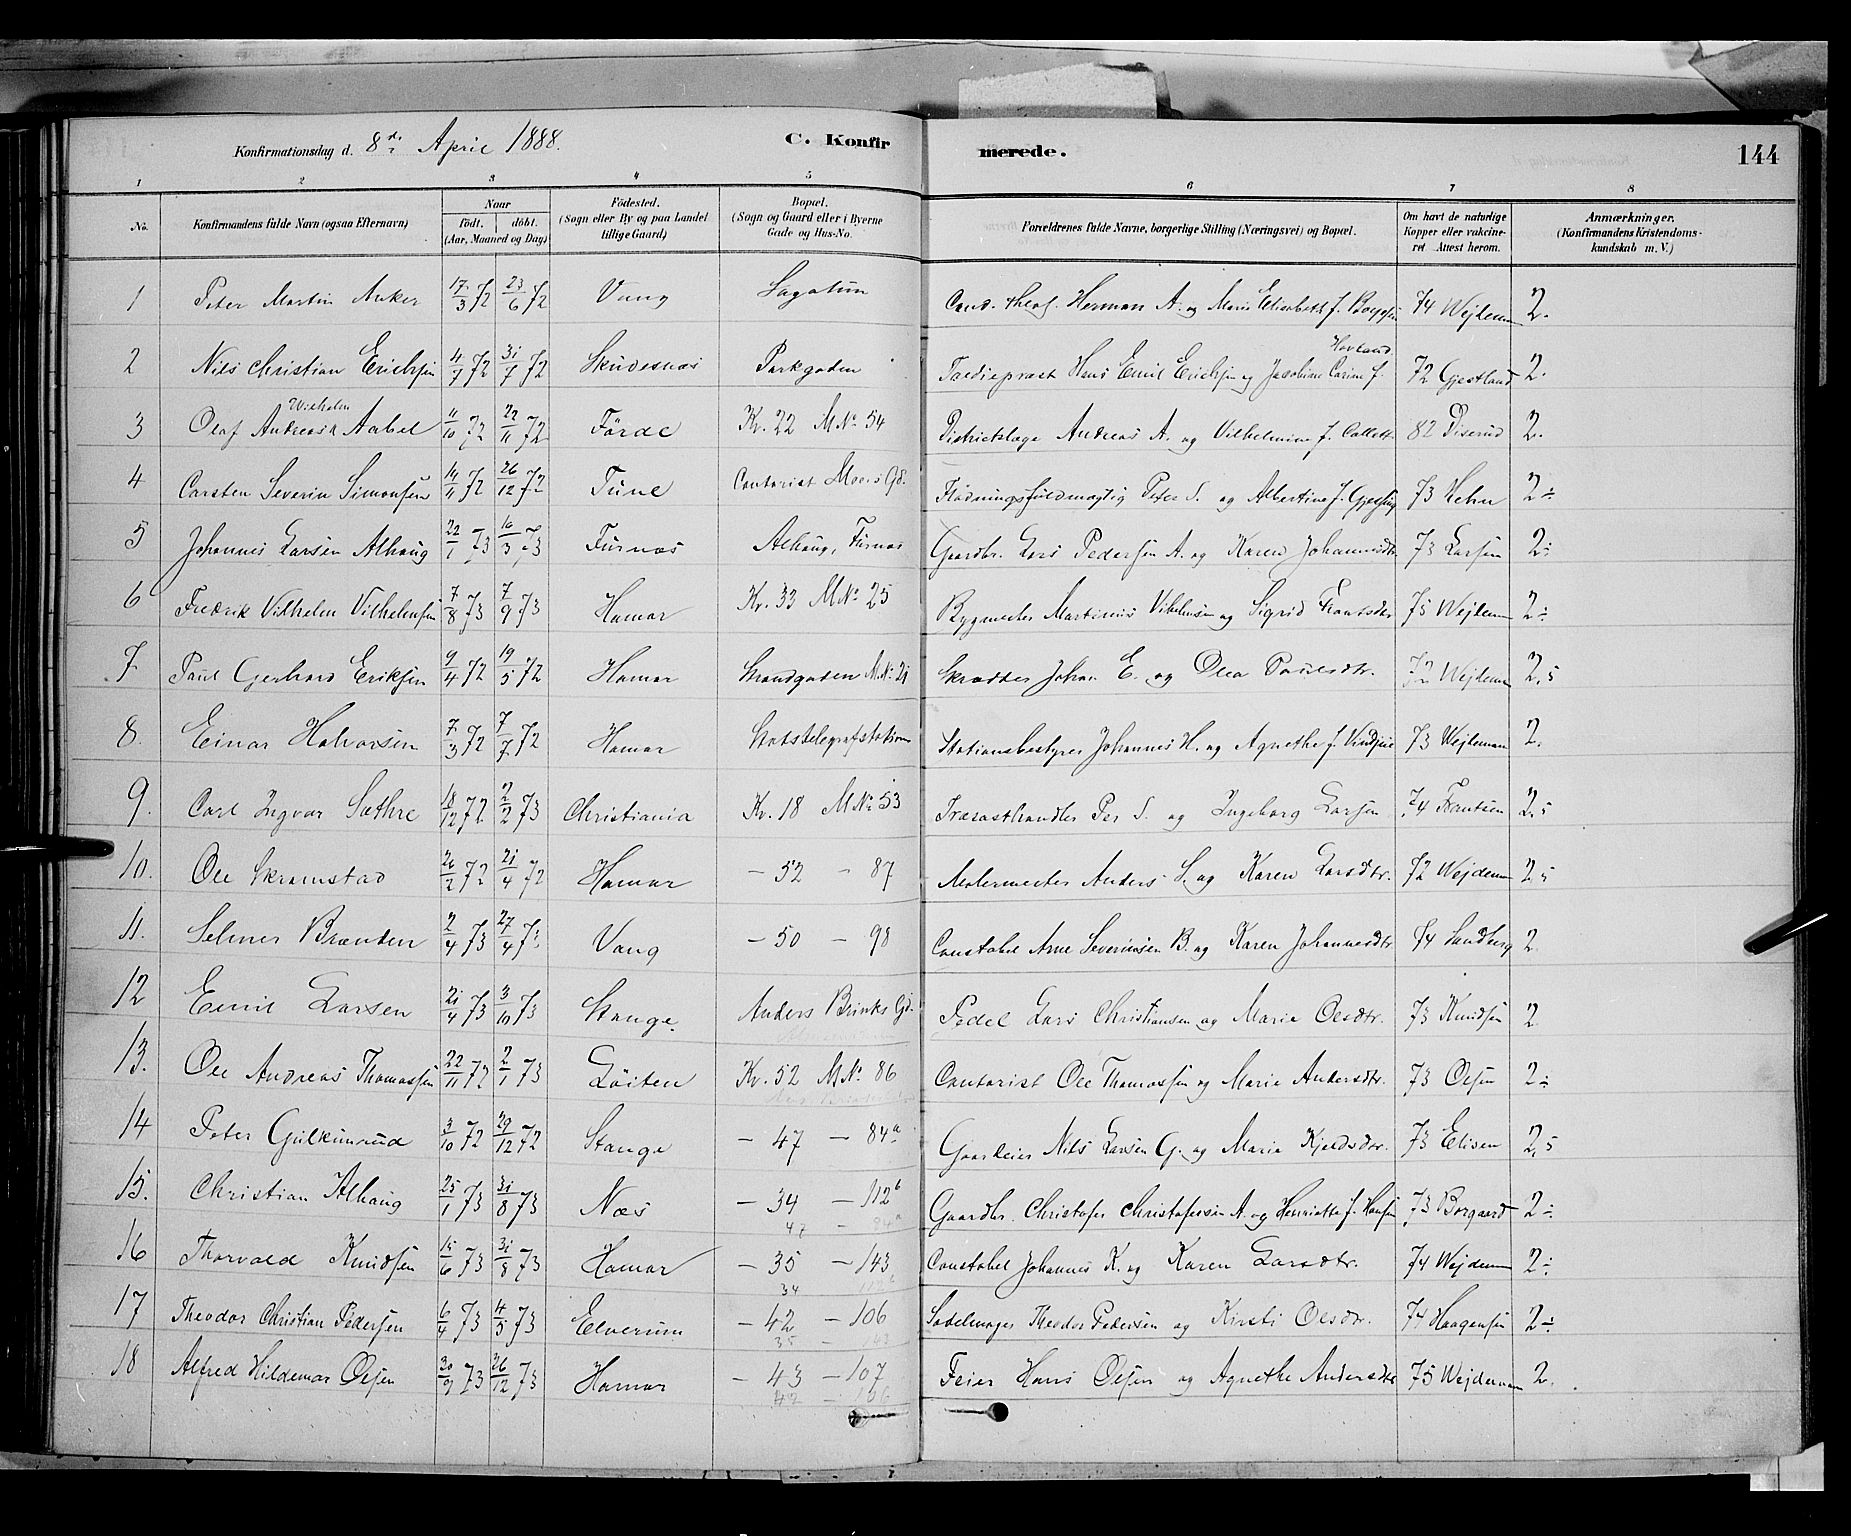 Konfirmationsdag d. 8de April 1888. C. Konfirmerede. 144
1 2 3 4 5 6 7 8
No. Konfirmandens fulde Navn (ogsaa Efternavn) Naar födt. döbt. (Aar, Maaned og Dag) Födested. (Sogn eller By og paa Landet tillige Gaard) Bopæl. (Sogn og Gaard eller i Byerne Gade og Hus-No. Forældrenes fulde Navne, borgerlige Stilling (Næringsvei) og Bopæl. Om havt de naturlige Kopper eller vakcineret Attest herom. Anmærkninger. (Konfirmandens Kristendomskundskab m. V.)
1 Peter Martin Anker 17/3 72 23/6 72 Vang Sagatun Cand. theol. Herman A. og Marie Elisabeth f. Boyesen 74 Wejdeman 2.
2 Nils Christian Erichsen 4/7 72 31/7 72 Skudesnæs Parkgaden Tredieprest Hans Emil Erichsen og Jacobine Carine f. Hovland 72 Gjestland 2.
3 Olaf Andreas Wilhelm Aabel 11/10 72 22/11 72 Förde Kv. 22 M.No. 54 Districtslæge Andreas A. og Vilhelmine f. Collett 82 Diserud 2.
4 Carsten Severin Simonsen 14/11 72 26/12 72 Tune Contorist Moe's Gd. Flödningsfuldmægtig Peter S. og Albertine f. Gjessing 73 Hehn 2÷
5 Johannes Larsen Alhaug 22/1 73 16/3 73 Furnæs Alhaug, Furnæs Gaardbr. Lars Pedersen A. og Karen Johannesdtr. 73 Larsen 2÷
6 Fredrik Vilhelm Vilhelmsen 7/8 73 7/9 73 Hamar Kv. 33 M.No. 25 Bygmester Martinius Vilhelmsen og Sigrid Frantsdtr. 75 Wejdeman 2÷
7. Paul Gerhard Eriksen 9/4 72 19/5 72 Hamar Strandgaden M.No. 21 Skrædder Johan E. og Olea Paulsdtr. 72 Wejdeman 2,5
8. Einar Halvorsen 7/3 72 7/7 72 Hamar Statstelegrafstation Stationsbestyrer Johannes H. og Agnethe f. Vindju 73 Wejdeman 2.
9. Carl Ingvar Sæthre 18/12 72 2/2 73 Christiania Kv. 18 M.No. 53 Trælasthandler Per S. og Ingeborg Larsen 74 Frantsen 2,5
10. Ole Skramstad 20/2 72 21/4 72 Hamar — 52 — 87 Malermester Anders S. og Karen Larsdtr. 72 Wejdeman 2,5
11. Selmer Brænden 2/4 73 27/4 73 Vang — 50 — 98 Constabel Arne Severinsen B. og Karen Johannesdtr. 74 Sandberg 2
12 Emil Larsen 21/4 73 3/10 73 Stange. Anders Brinks Gd. Pedel Lars Christiansen og Marie Olsdtr. 73 Knudsen 2
13. Ole Andreas Thomassen 22/11 72 2/1 73 Löiten Kv. 52 M.No. 86 Contorist Ole Thomassen og Marie Andersdtr. 73 Olsen 2÷
14 Peter Gulkunrud 3/10 72 29/12 72 Stange — 47 — 84a Gaardeier Nils Larsen G. og Marie Kjeldsdtr. 73 Ellisen 2,5
15. Christian Alhaug 25/1 73 31/8 73 Næs — 34 — 112b Gaardbr. Christofer Christofersen A. og Henriette f. Hansen 73 Borgaard 2÷
16 Thorvald Knudsen 15/6 73 31/8 73 Hamar — 35 — 143 Constabel Johannes K. og Karen Larsdtr. 74 Wejdeman 2÷
17 Theodor Christian Pedersen 6/4 73 4/5 73 Elverum — 42 — 106 Sadelmager Theodor Pedersen og Kirsti Olsdtr. 74 Haagensen 2÷
18 Alfred Hildemar Olsen 30/9 73 26/12 73 Hamar — 43 — 107 Feier Hans Olsen og Agnethe Andersdtr. 75 Wejdeman 2.